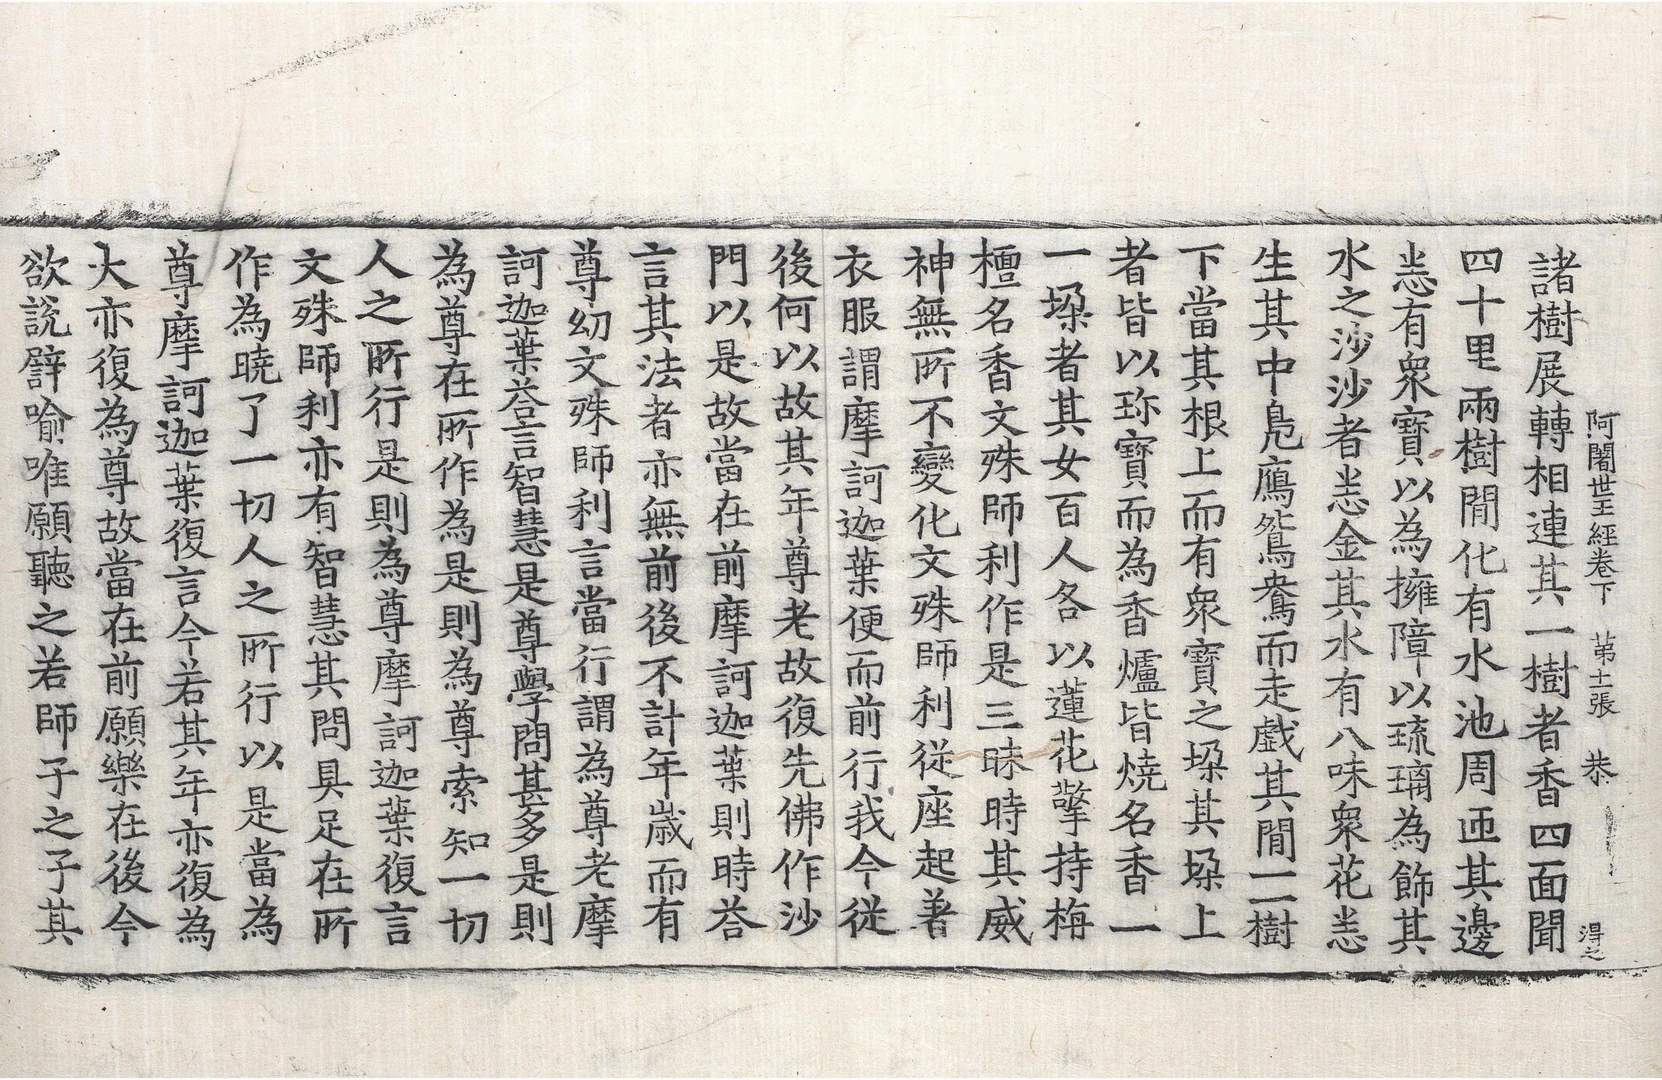 阿闍世王經卷下 第十一張 恭 得之
諸樹展轉相連其一樹者香四面聞
四十里兩樹間化有水池周匝其邊
悉有衆寶以為擁障以琉璃為飾其
水之沙沙者悉金其水有八味衆花悉
生其中鳧鴈鴛鴦而走戲其間一一樹
下當其根上而有衆寶之垛其垛上
者皆以珎寶而為香爐皆燒名香一
一垛者其女百人各以蓮花擎持栴
檀名香文殊師利作是三昧時其威
神無所不變化文殊師利從座起著
衣服謂摩訶迦葉便而前行我今從
後何以故其年尊老故復先佛作沙
門以是故當在前摩訶迦葉則時荅
言其法者亦無前後不計年歲而有
尊幼文殊師利言當行謂為尊老摩
訶迦葉荅言智慧是尊學問甚多是則
為尊在所作為是則為尊索知一切
人之所行是則為尊摩訶迦葉復言
文殊師利亦有智慧其問具足在所
作為曉了一切人之所行以是當為
尊摩訶迦葉復言今若其年亦復為
大亦復為尊故當在前願樂在後今
欲說譬喻唯願聽之若師子之子其